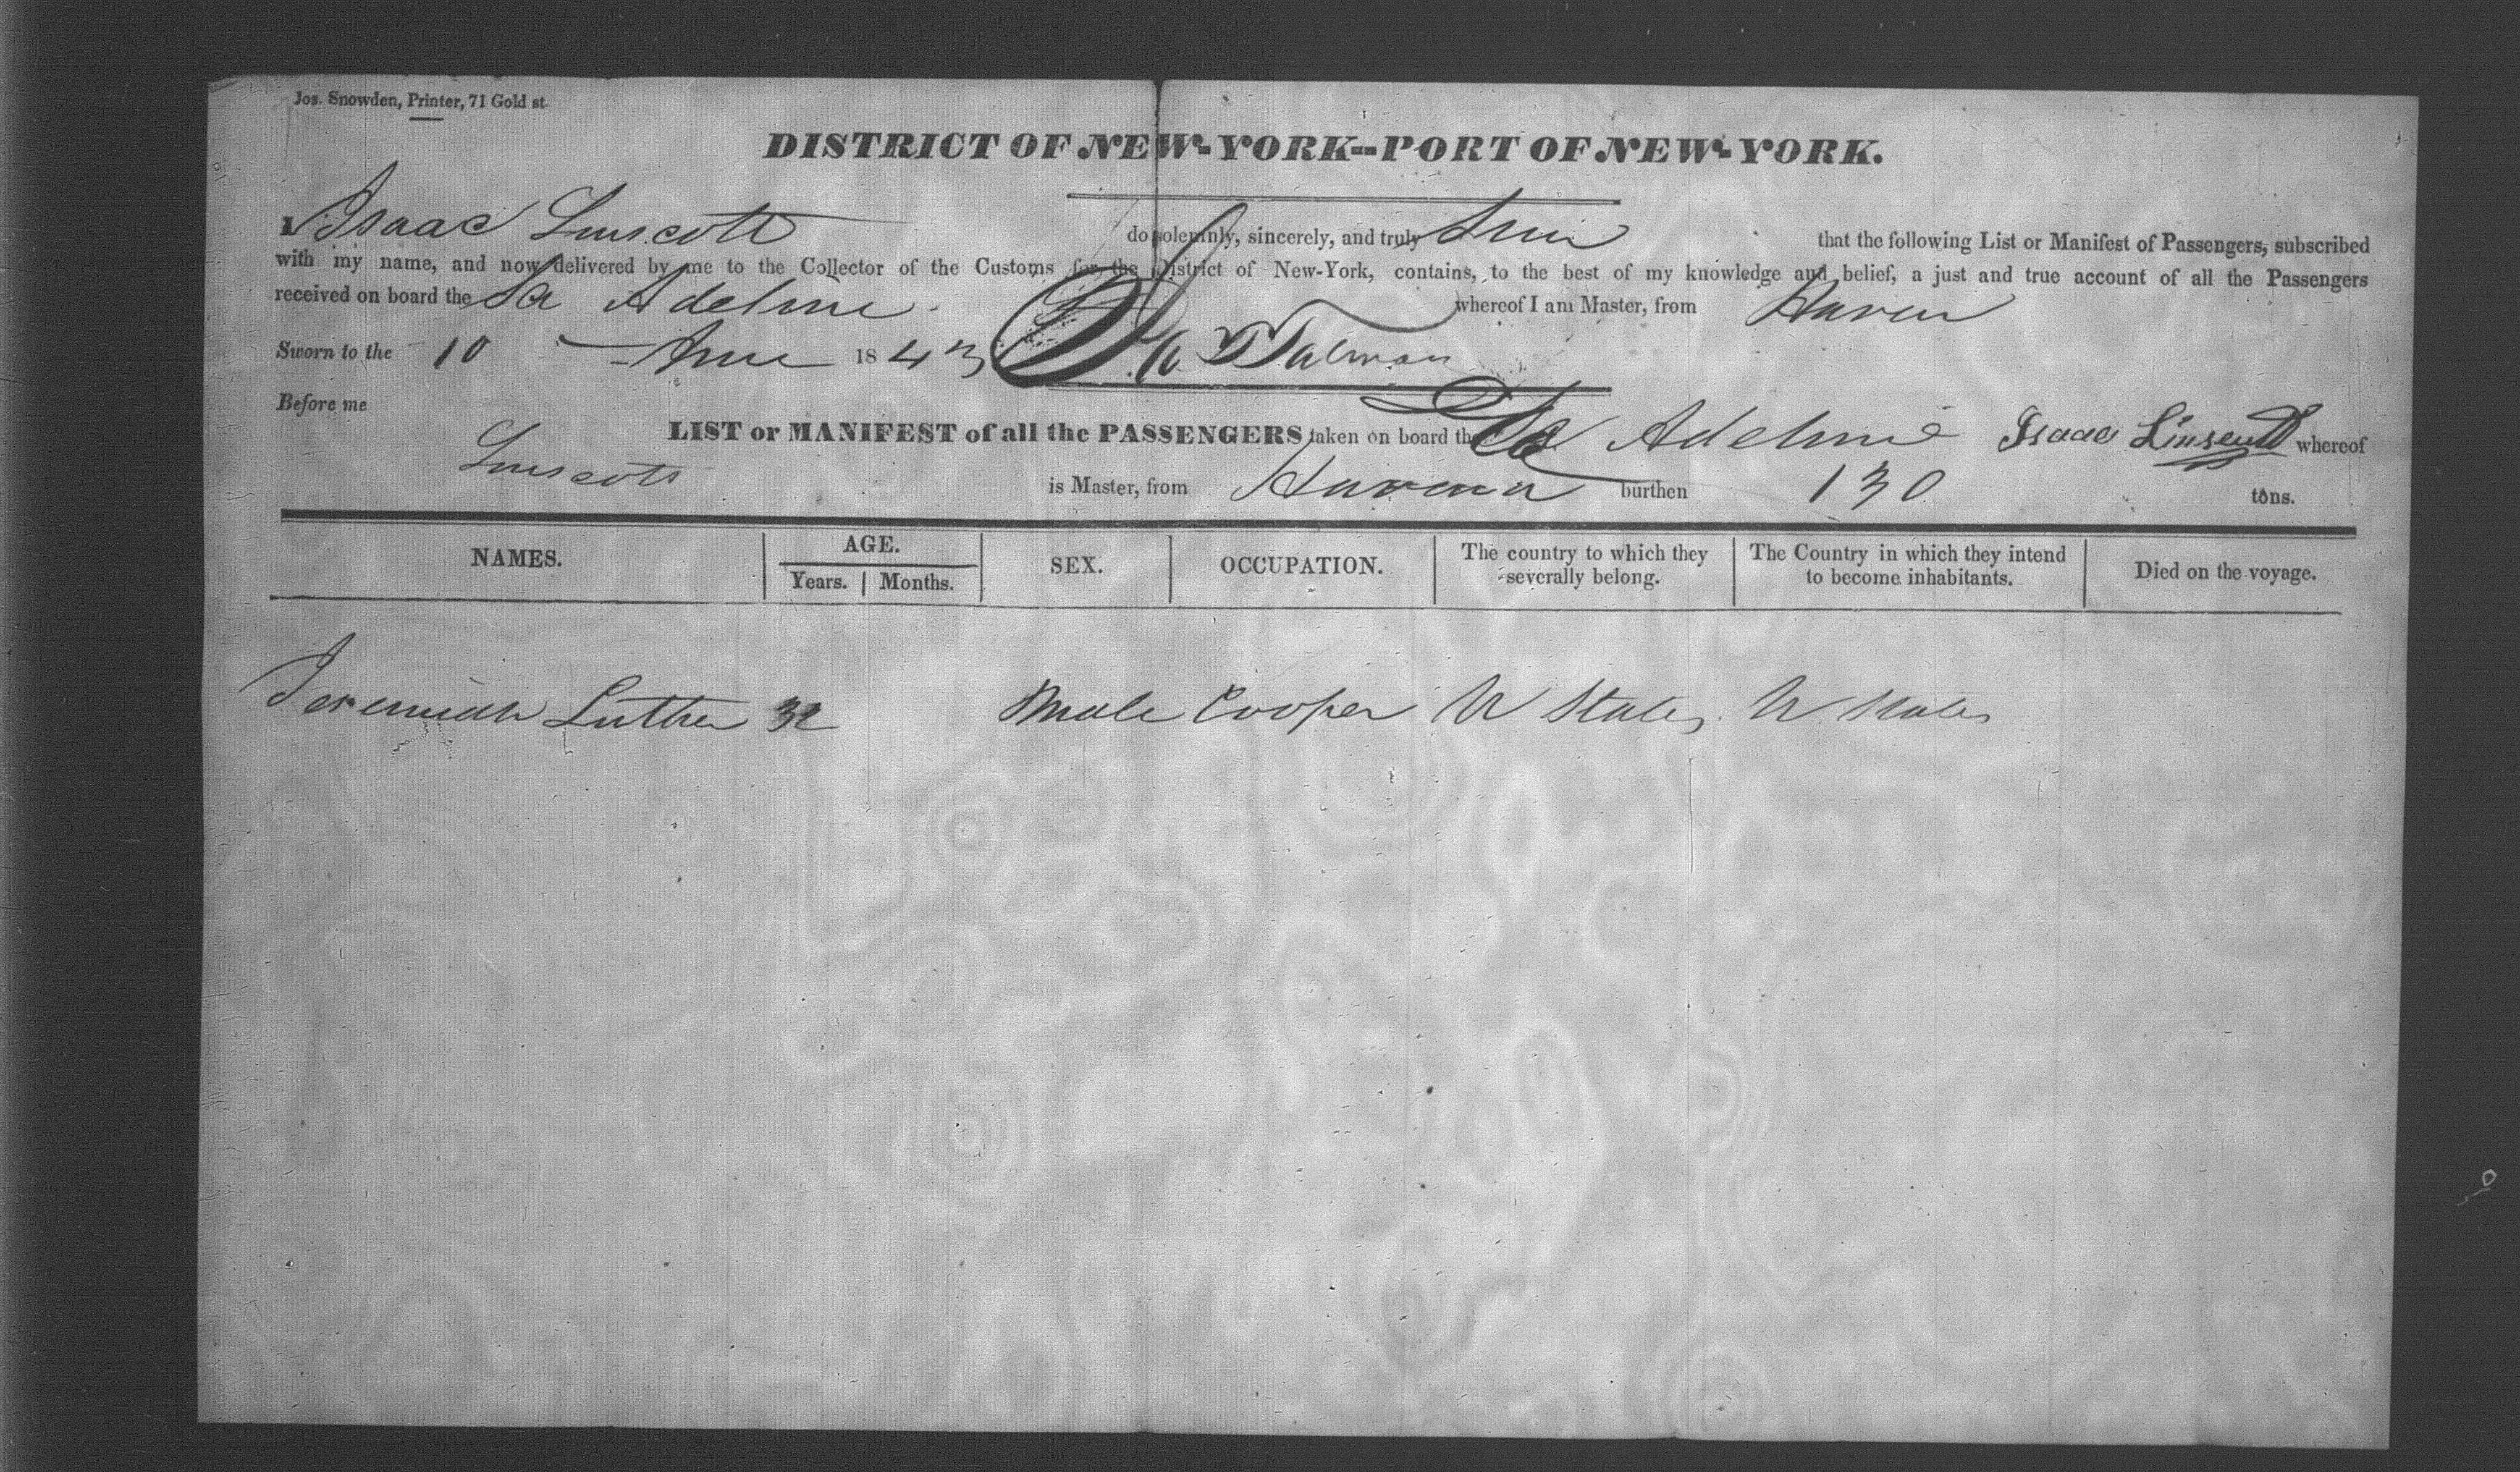 Jos. Snowden, Printer, 71 Gold st.
DISTRICT OF NEW-YORK--PORT OF NEW-YORK.
I Isaac Linscott do solemnly, sincerely, and truly that the following List or Manifest of Passengers, subscribed
with my name, and now delivered by me to the Collector of the Customs for the District of New-York, contains, to the best of my knowledge and belief, a just and true account of all the Passengers
received on board the Adeline whereof I am Master, from
Sworn to the 10 June 1843
Before me
LIST or MANIFEST of all the PASSENGERS taken on board the Adeline Isaac Linscott whereof
Linscott is Master, from Havana burthen 130 tons.
NAMES. AGE. Years. Months. SEX. OCCUPATION. The country to which they severally belong. The Country in which they intend to become inhabitants. Died on the voyage.
Jeremiah Luther 32 Male Cooper U States U States